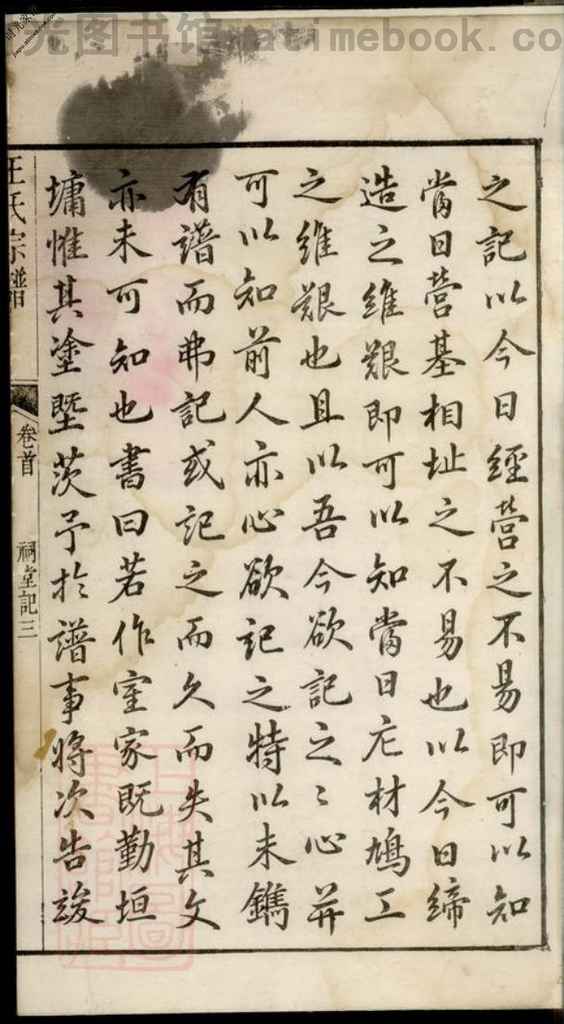 光图书馆 atimebook.co
之記以今日經营之不易即可以知
當日营基相址之不易也以今日締
造之維艱即可以知當日庀材鳩工
之維艱也且以吾今欲記之〻心并
可以知前人亦心欲記之特以未鐫
有譜而弗記或記之而久而失其文
亦未可知也書曰若作室家既勤垣
墉惟其塗塈茨予於譜事將次告竣
王氏宗譜
卷首
祠堂記三